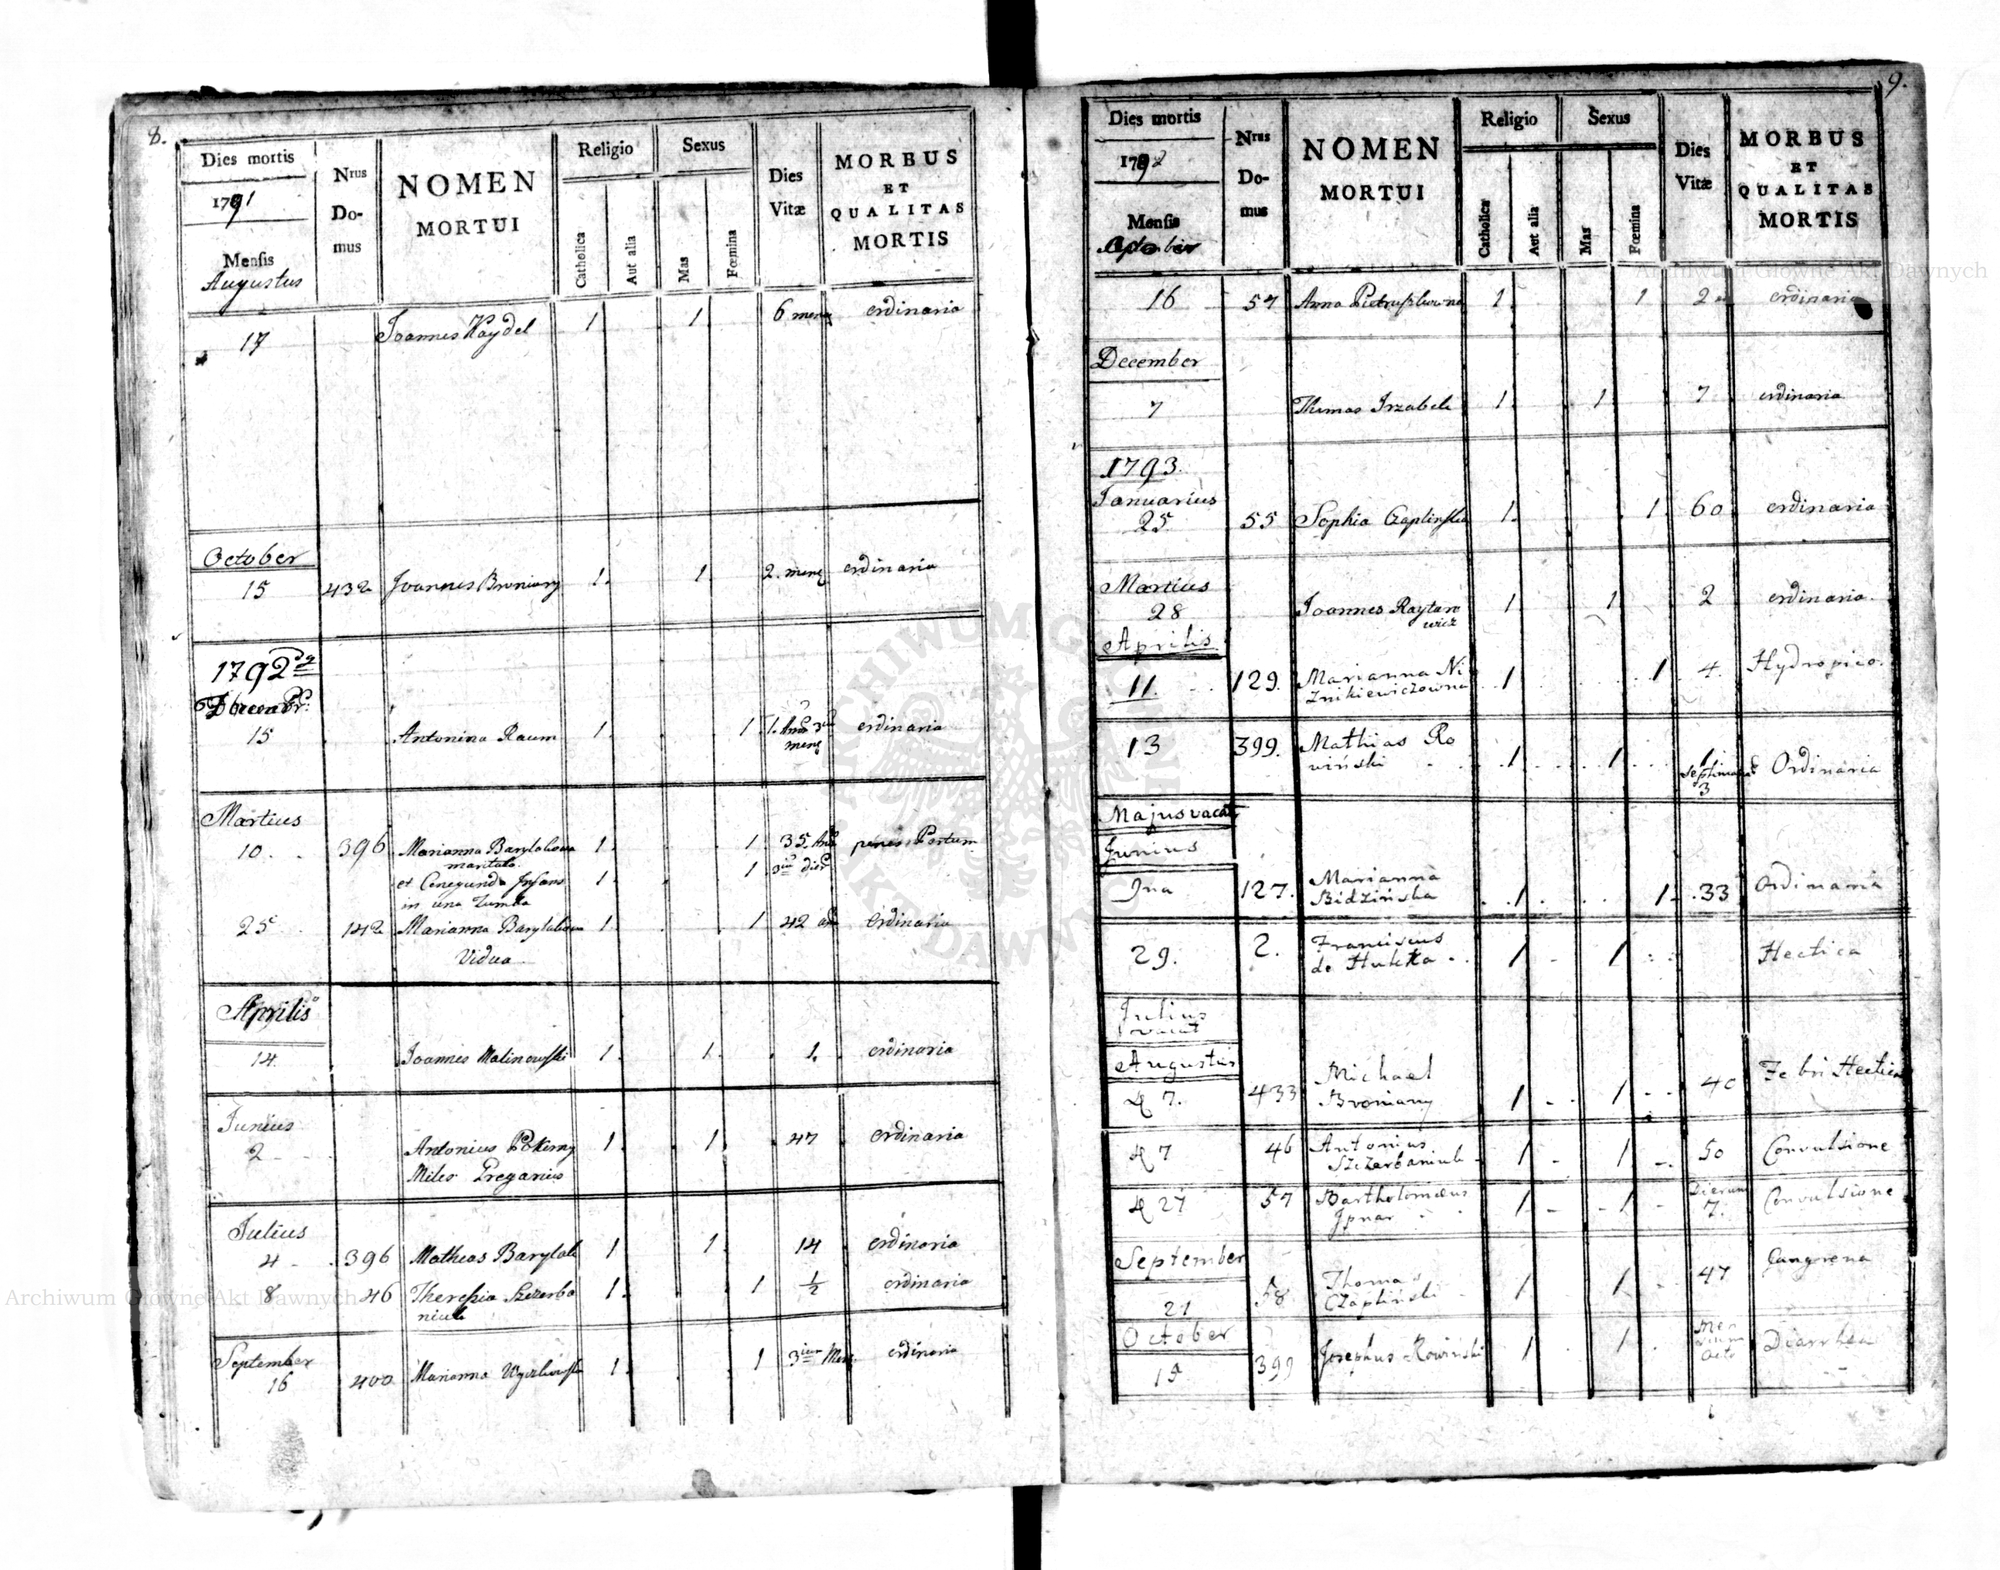 8.
Dies mortis
1791
Mensis
Augustus
Nrus
Do-
mus
NOMEN
MORTUI
Religio
Catholica
Aut alia
Sexus
Mas
Fœmina
Dies
Vitæ
MORBUS
ET
QUALITAS
MORTIS
17 Joannes Haydel 1 1 6 mens ordinaria
October
15 432 Joannes Broniany 1. 1 2. mens ordinaria
1792
15 Antonina Raum 1. 1 1. mens ordinaria
Martius
10. 396 Marianna 1. 1 35. penes Partum
1. 1
et Cunegunda Infans
in una
25 142 Marianna 1. 1 42 ordinaria
Vidua
Aprilis
14. Joannes Malinowski 1. 1. 1. ordinaria
Junius
2 Antonius 1. 1 47 ordinaria
Miles Gregarius
Julius
4 396 Matheas Barylak 1 1. 14 ordinaria
8 46 Theresia Szczerba 1. 1 1/2 ordinaria
niuk
September
16 400 Marianna 1. 1 3 Mens. ordinaria
9.
Dies mortis
1792
Mensis
Nrus
Do-
mus
NOMEN
MORTUI
Religio
Catholica
Aut alia
Sexus
Mas
Fœmina
Dies
Vitæ
MORBUS
ET
QUALITAS
MORTIS
16 57 Anna 1 1 2 ordinaria
December
7 Thomas 1. 1 7 ordinaria
1793.
Januarius
25 55 Sophia Czaplinska 1. 1 60 ordinaria
Martius
28 Joannes Raytaro 1 1 2 ordinaria.
wicz
Aprilis
11. 129. Marianna Ni 1 1 4. Hydropico.
znikiewiczowna
13 399. Mathias Ro
winski 1 1 1 Ordinaria
3
Majus vacat
Junius
127. Marianna
Bidzińska 1. 1. 33 Ordinaria
29. 2. Franciscus
de 1 1 Hectica
Julius
vacat
Augustus
7. 433 Michael 40 Febri Hectica
Broniany 1 1
7 46 Antonius 50 Convulsione
Szczerbaniuk 1 1
27 57 Bartholomæus Dierum Convulsione
1 1 7.
September
21 58 Thomas 47 Gangrena
Czapliński 1 1
October
399 Josephus Rowiński 1 1 Diarrhea
Archiwum Główne Akt Dawnych
Archiwum Główne Akt Dawnych
ARCHIWUM GŁÓWNE AKT DAWNYCH